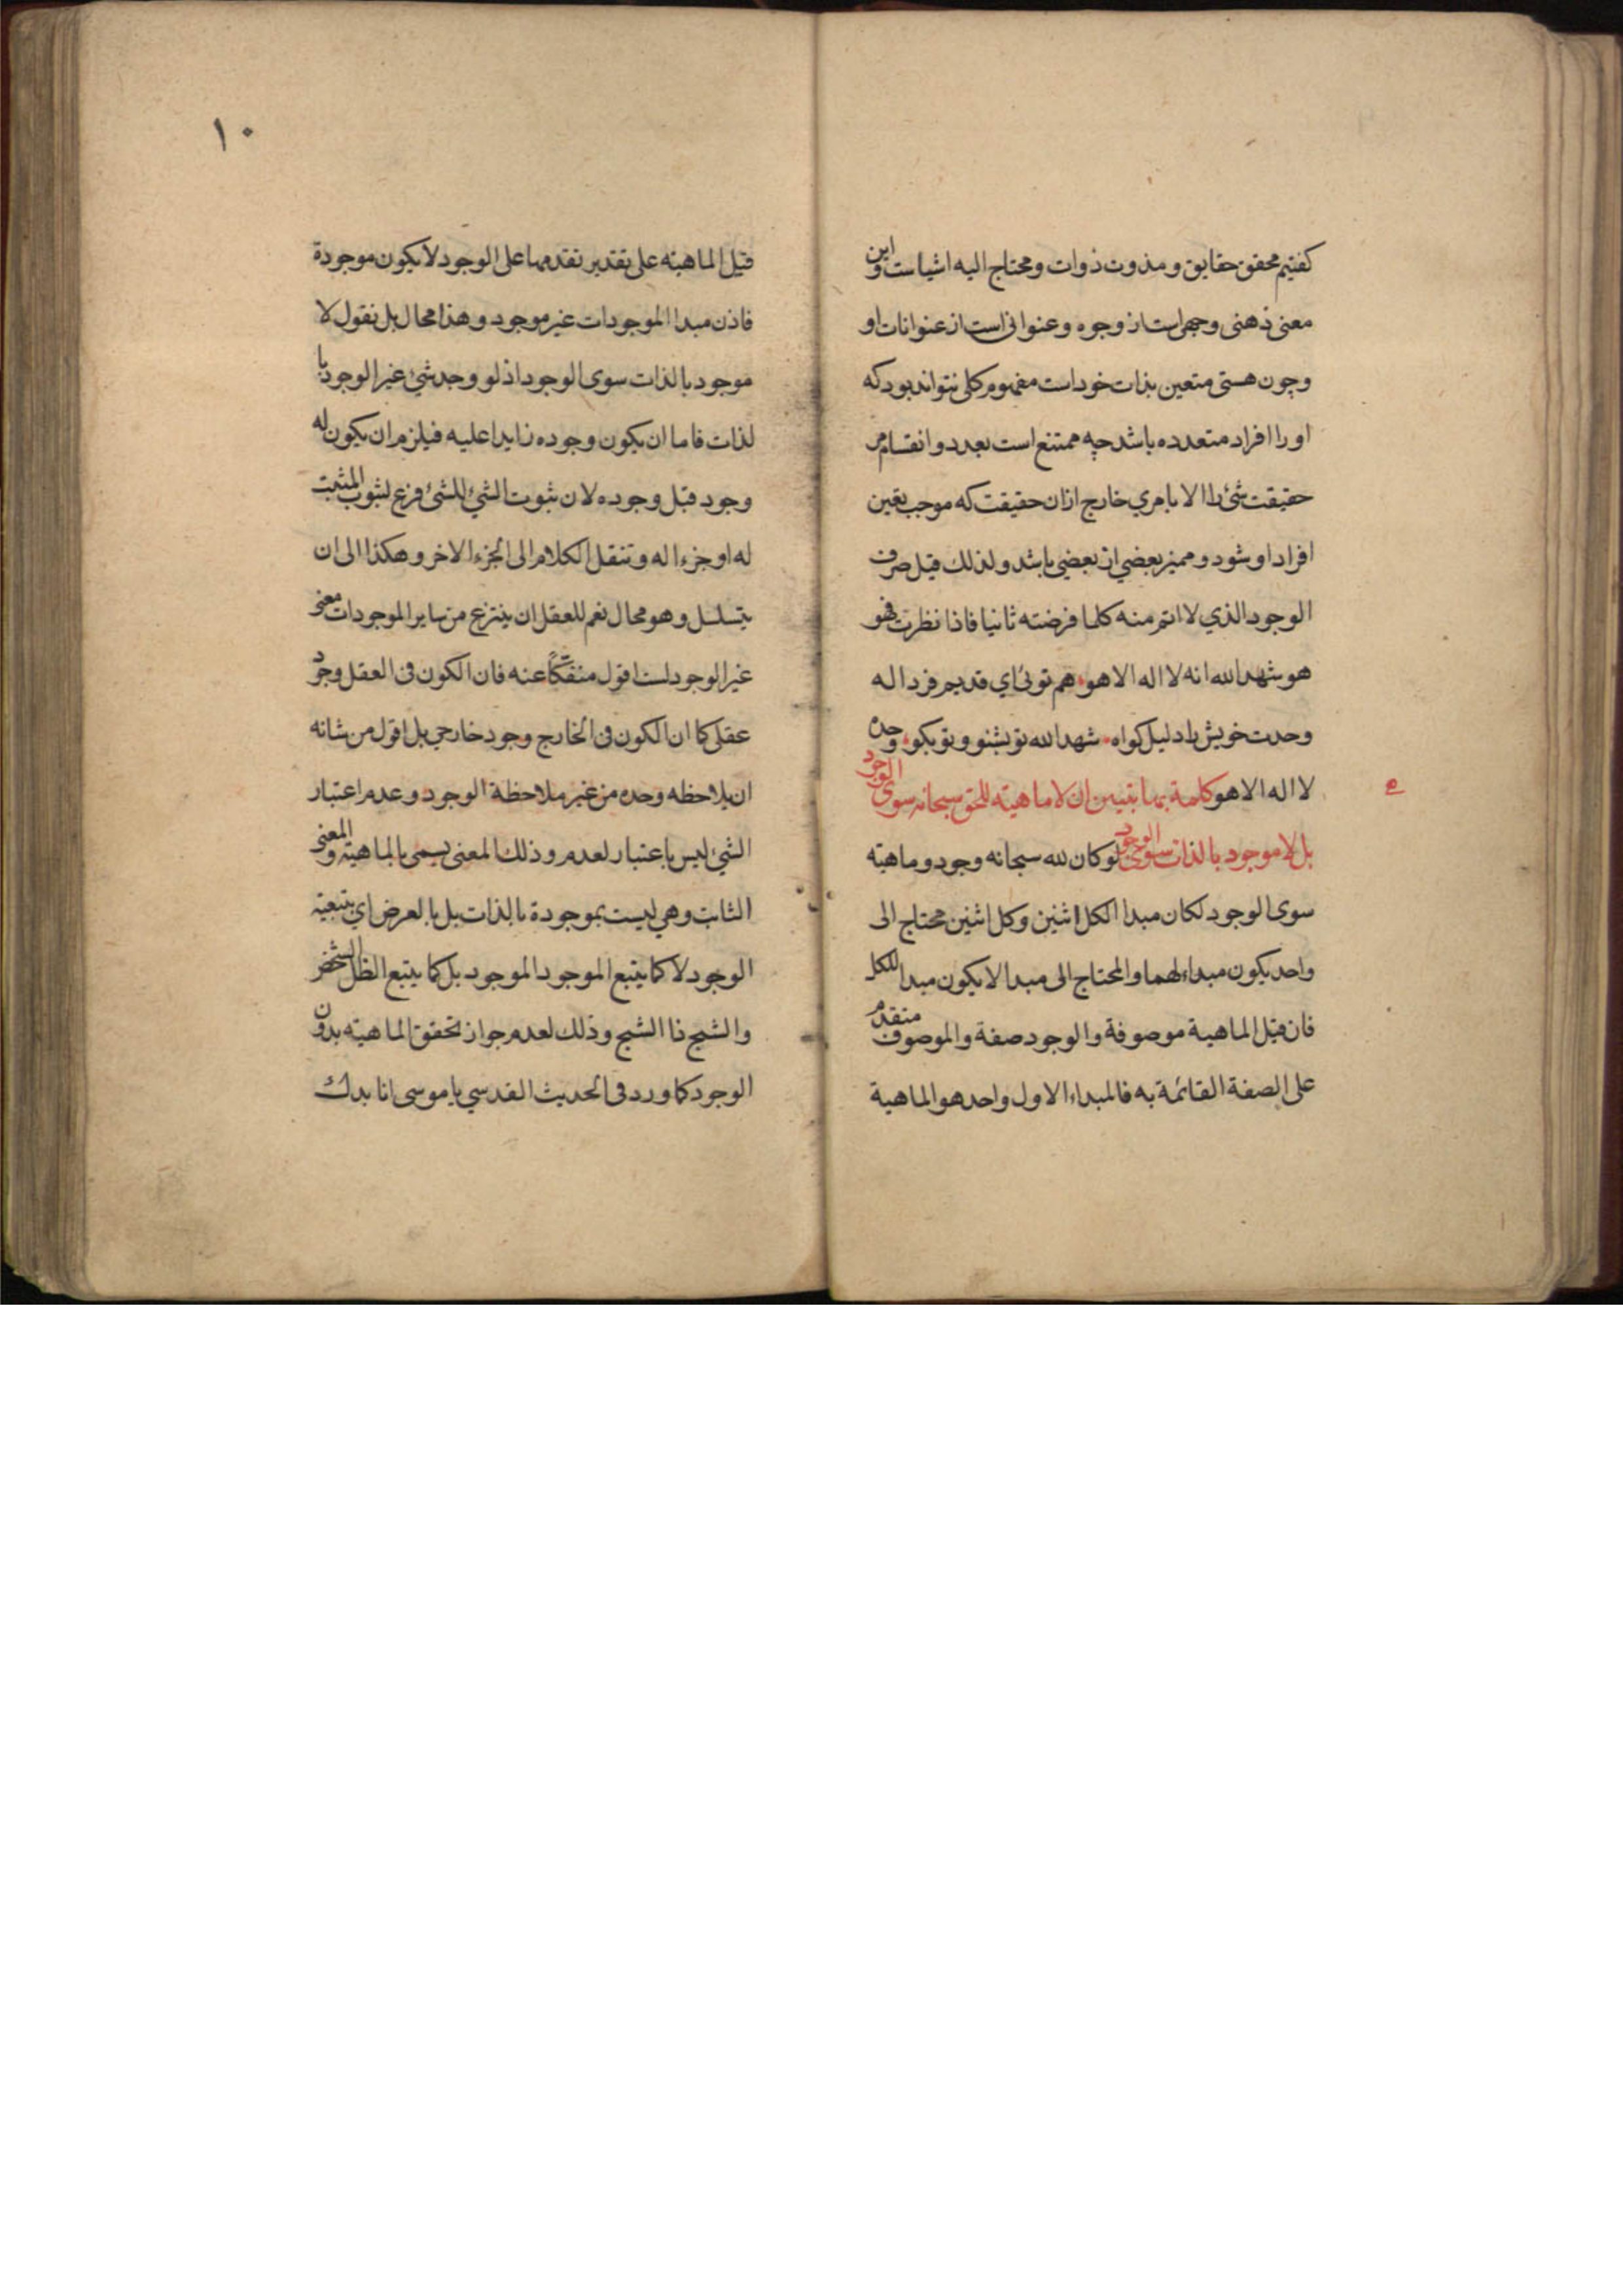 كفتيم محقق حقايق و مذوت ذوات و محتاج اليه اشياست و اين
معنى ذهنى وجهى است از وجوه و عنوانى است از عنوانات او
و چون هستى متعين بذات خود است مفهوم كلى نتواند بود كه
او را افراد متعدده باشد چه ممتنع است تعدد و انقسام مر
حقيقت شئ را الا بامري خارج از ان حقيقت كه موجب تعين
افراد او شود و مميز بعضي از بعضي باشد و لذلك قيل صرف
الوجود الذي لا اتم منه كلما فرضته ثانيا فاذا نظرت فهو
هو شهد الله انه لا اله الا هو هم توئى اي قديم فرد اله
وحدت خويش را دليل كواه شهد الله تو بشنو و تو بكو وحده
لا اله الا هو كلمة بها يتبين ان لا ماهيته للحق سبحانه سوى الوجود
ه
بل لا موجود بالذات سوى الوجود لو كان لله سبحانه وجود و ماهيته
سوى الوجود لكان مبدا الكل اثنين وكل اثنين محتاج الى
واحد يكون مبداء لهما والمحتاج الى مبدا لا يكون مبدا للكل
فان قيل الماهية موصوفة والوجود صفة والموصوف متقدم
على الصفة القائمة به فالمبداء الاول واحد هو الماهية
١٠
قيل الماهيته على تقدير تقدمها على الوجود لا يكون موجودة
فاذن مبدا الموجودات غير موجود وهذا محال بل نقول لا
موجود بالذات سوى الوجود اذ لو وجد شئ غير الوجود با
لذات فاما ان يكون وجوده زايدا عليه فيلزم ان يكون له
وجود قبل وجوده لان ثبوت الشئ للشئ فرع لثبوت المثبت
له او جزءا له و تنقل الكلام الى الجزء الاخر وهكذا الى ان
يتسلسل وهو محال نعم للعقل ان ينتزع من ساير الموجودات معنى
غير الوجود لست اقول منفكّاً عنه فان الكون فى العقل وجود
عقلى كما ان الكون فى الخارج وجود خارجي بل اقول من شانه
ان يلاحظه وحده من غير ملاحظة الوجود و عدم اعتبار
الشئ ليس باعتبار لعدم وذلك المعنى يسمى بالماهيته و المعنى
الثابت وهي ليست بموجودة بالذات بل بالعرض اي بتبعيته
الوجود لا كما يتبع الموجود الموجود بل كما يتبع الظل الشخص
والشبح ذا الشبح وذلك لعدم جواز تحقق الماهيته بدون
الوجود كما ورد فى الحديث القدسي يا موسى انا بدك